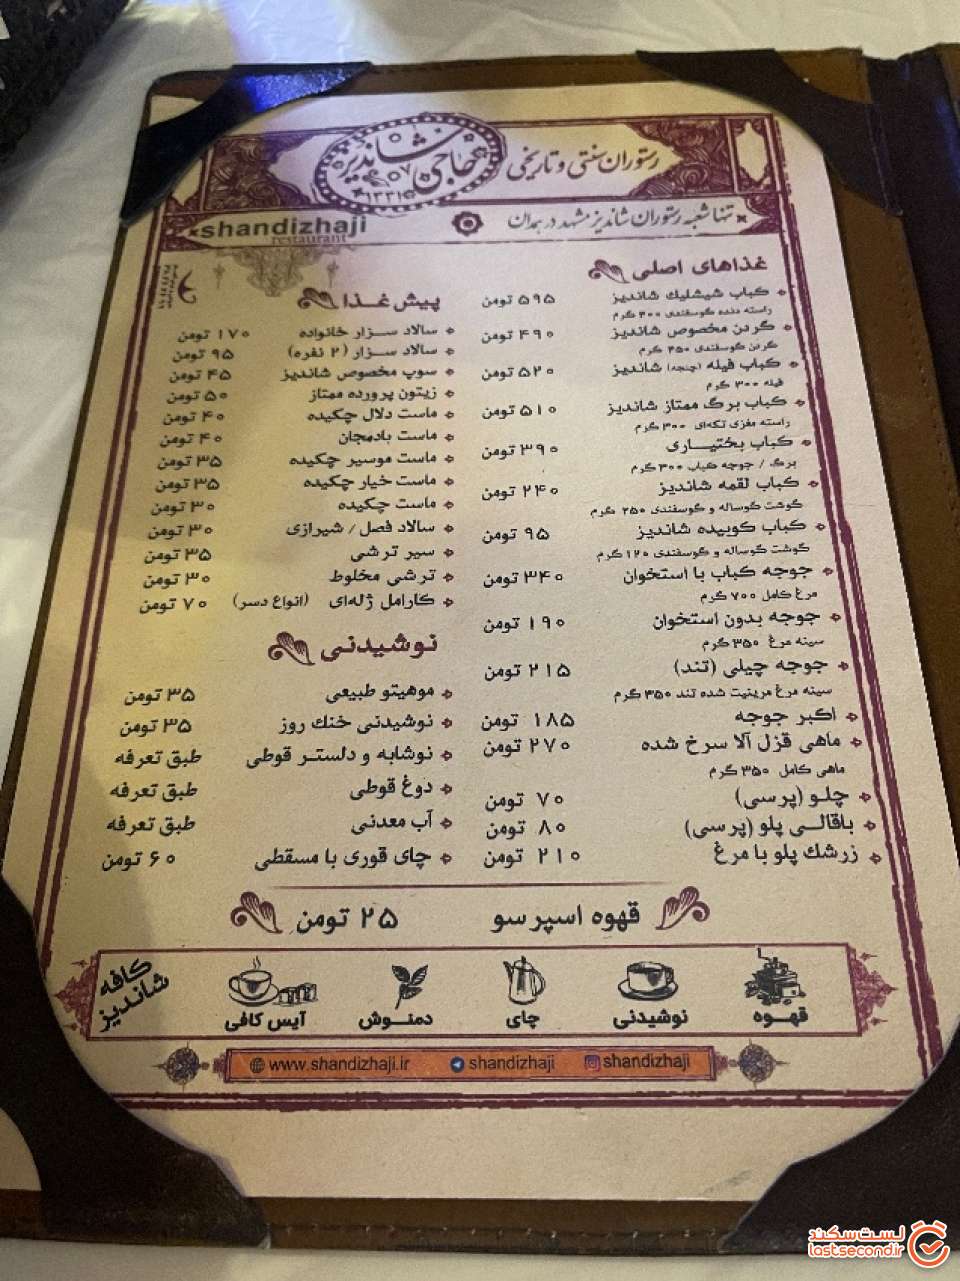 رستوران سنتی و تاریخی
حاجی شاندیز
۱۳۳۱
تنها شعبه رستوران شاندیز مشهد در همدان
shandizhaji
restaurant
غذاهای اصلی
کباب شیشلیک شاندیز ۵۹۵ تومن
راسته دنده گوسفندی ۴۰۰ گرم
گردن مخصوص شاندیز ۴۹۰ تومن
گردن گوسفندی ۴۵۰ گرم
کباب فیله (چنجه) شاندیز ۵۲۰ تومن
فیله ۳۰۰ گرم
کباب برگ ممتاز شاندیز ۵۱۰ تومن
راسته مغزی تکه‌ای ۳۰۰ گرم
کباب بختیاری ۳۹۰ تومن
برگ / جوجه کباب ۳۰۰ گرم
کباب لقمه شاندیز ۲۴۰ تومن
گوشت گوساله و گوسفندی ۲۵۰ گرم
کباب کوبیده شاندیز ۹۵ تومن
گوشت گوساله و گوسفندی ۱۲۰ گرم
جوجه کباب با استخوان ۳۴۰ تومن
مرغ کامل ۷۰۰ گرم
جوجه بدون استخوان ۱۹۰ تومن
سینه مرغ ۳۵۰ گرم
جوجه چیلی (تند) ۲۱۵ تومن
سینه مرغ مرینیت شده تند ۳۵۰ گرم
اکبر جوجه ۱۸۵ تومن
ماهی قزل آلا سرخ شده ۲۷۰ تومن
ماهی کامل ۳۵۰ گرم
چلو (پرسی) ۷۰ تومن
باقالی پلو (پرسی) ۸۰ تومن
زرشک پلو با مرغ ۲۱۰ تومن
پیش غذا
سالاد سزار خانواده ۱۷۰ تومن
سالاد سزار (۲ نفره) ۹۵ تومن
سوپ مخصوص شاندیز ۴۵ تومن
زیتون پرورده ممتاز ۵۰ تومن
ماست دلال چکیده ۴۰ تومن
ماست بادمجان ۴۰ تومن
ماست موسیر چکیده ۳۵ تومن
ماست خیار چکیده ۳۵ تومن
ماست چکیده ۳۰ تومن
سالاد فصل / شیرازی ۳۰ تومن
سیر ترشی ۳۵ تومن
ترشی مخلوط ۳۰ تومن
کارامل ژله‌ای (انواع دسر) ۷۰ تومن
نوشیدنی
موهیتو طبیعی ۳۵ تومن
نوشیدنی خنک روز ۳۵ تومن
نوشابه و دلستر قوطی طبق تعرفه
دوغ قوطی طبق تعرفه
آب معدنی طبق تعرفه
چای قوری با مسقطی ۶۰ تومن
قهوه اسپرسو ۲۵ تومن
قهوه نوشیدنی چای دمنوش آیس کافی
کافه شاندیز
www.shandizhaji.ir shandizhaji shandizhaji
لست سکند
lastsecond.ir